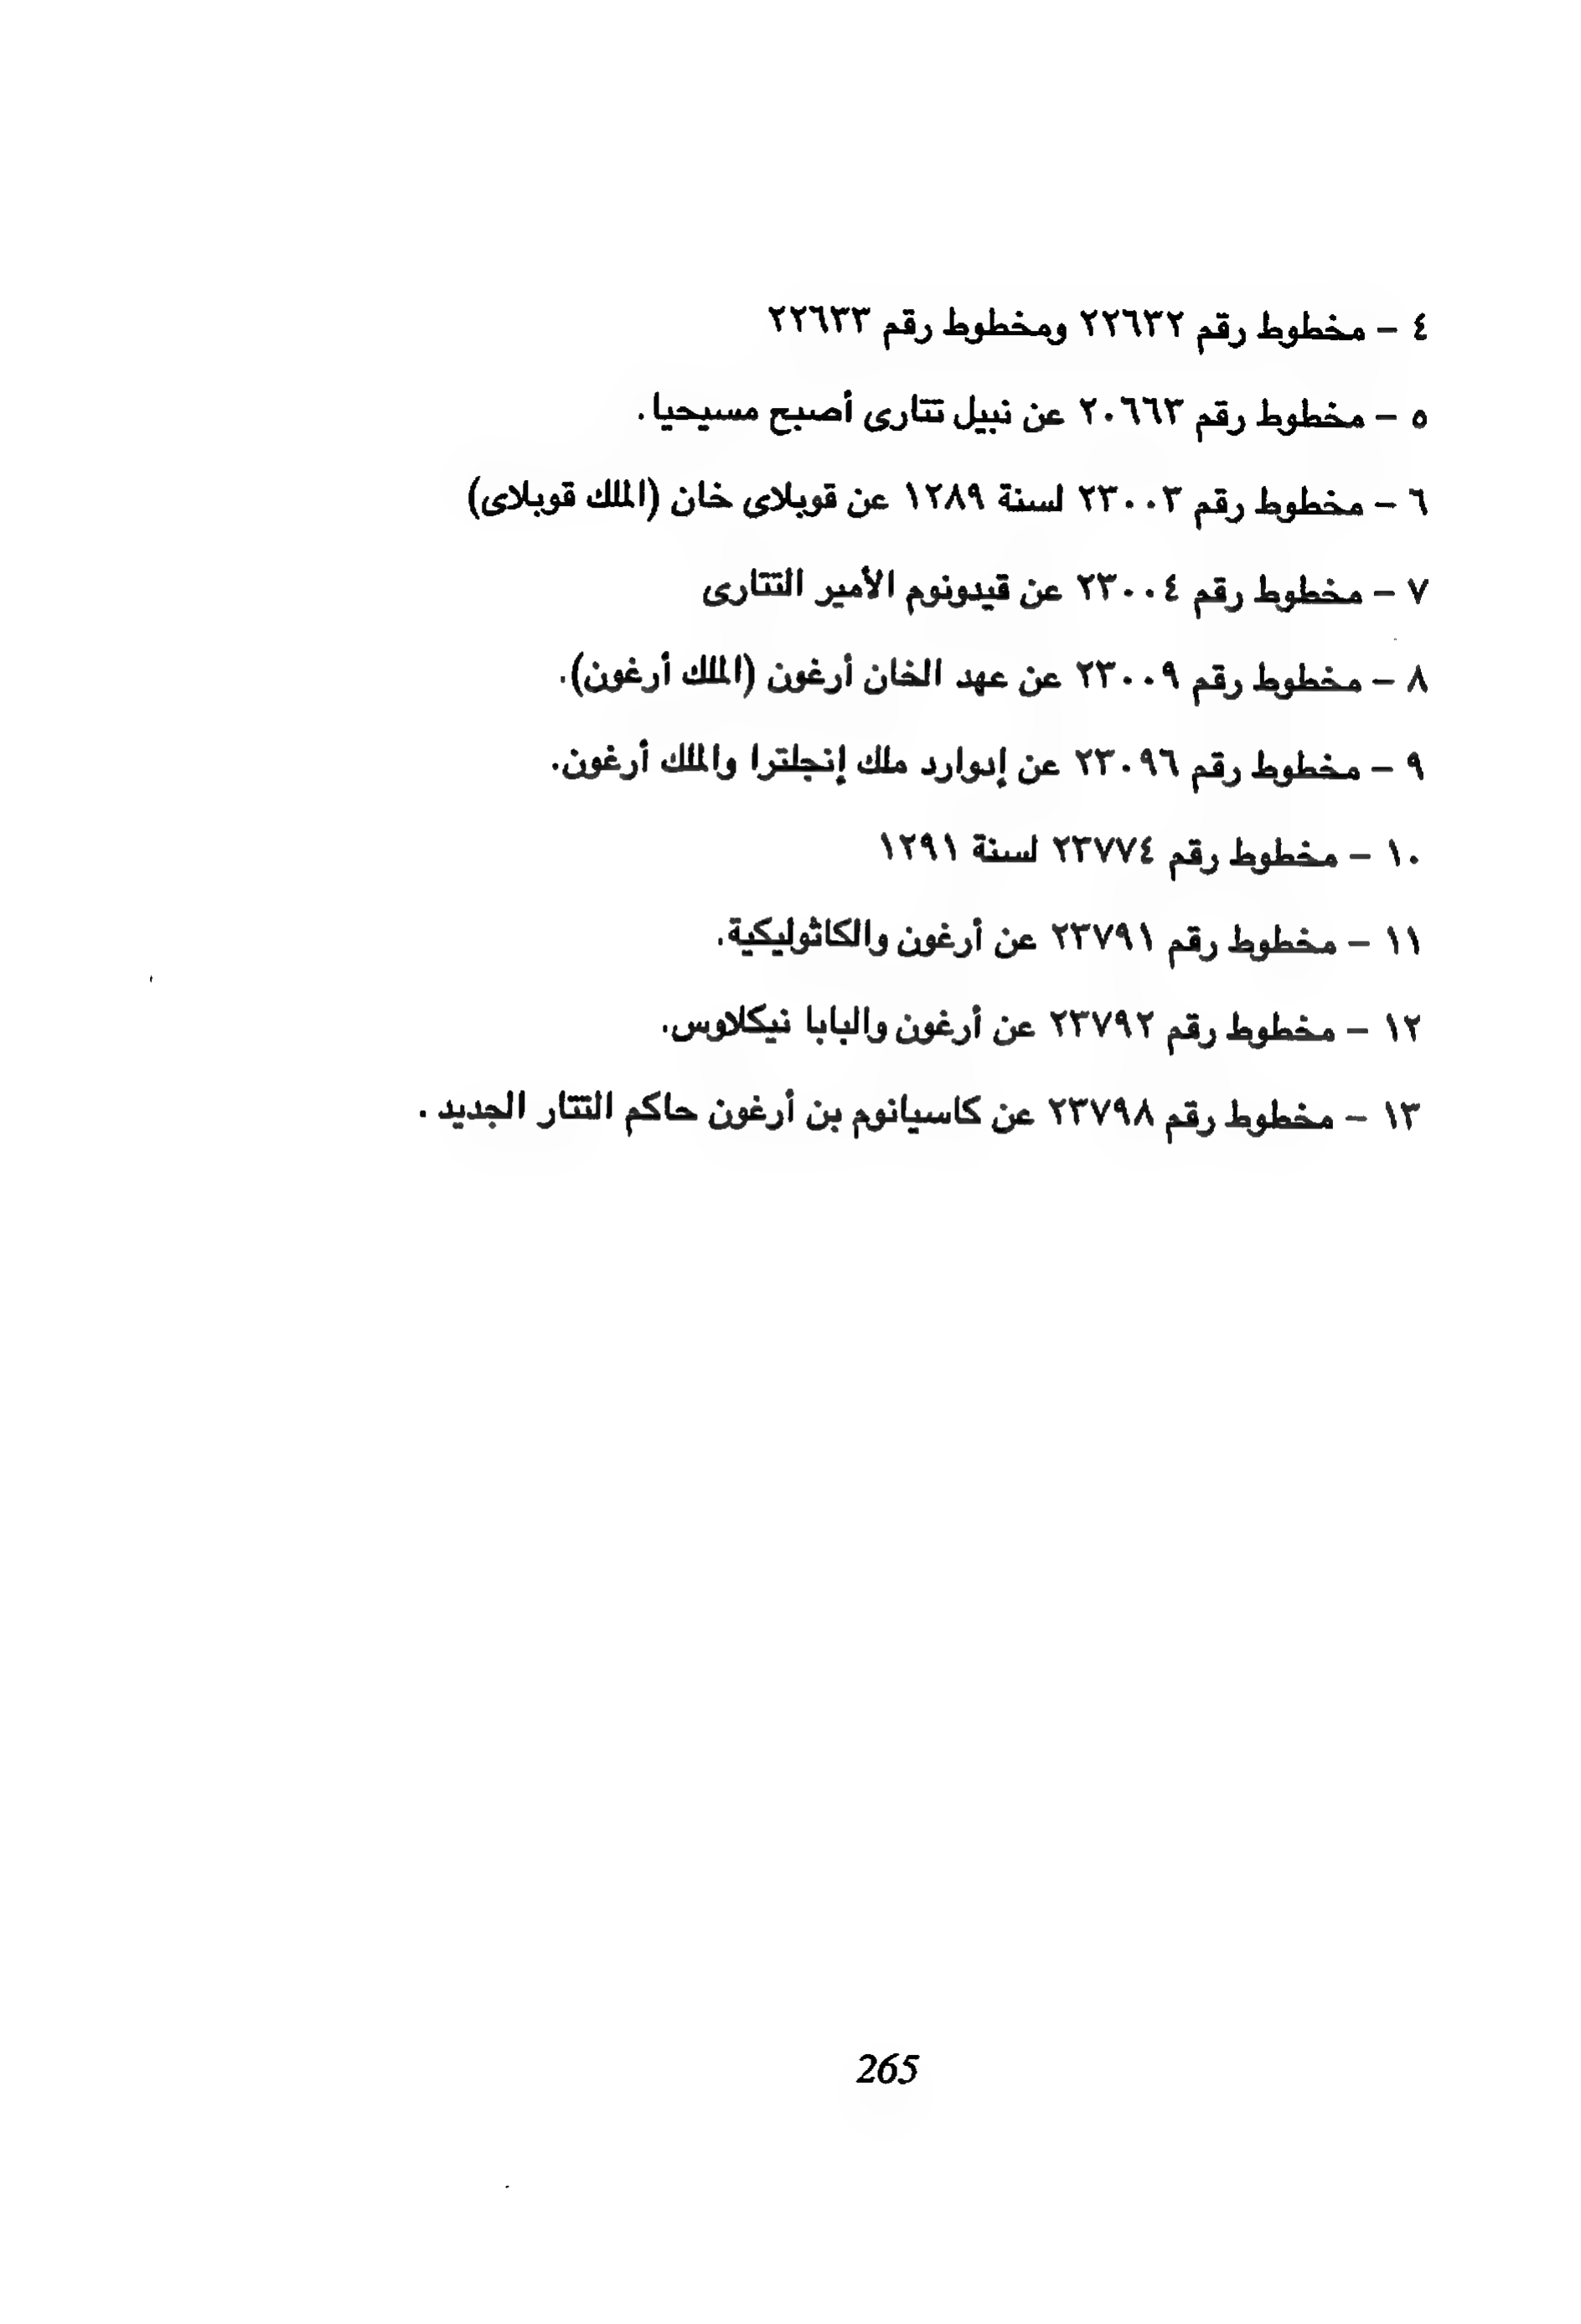 ٤ – مخطوط رقم ٢٢٦٣٢ ومخطوط رقم ٢٢٦٣٣
٥ – مخطوط رقم ٢٠٦٦٣ عن نبيل تتارى أصبح مسيحيا.
٦ – مخطوط رقم ٢٣٠٠٣ لسنة ١٢٨٩ عن قوبلاى خان (الملك قوبلاى)
٧ – مخطوط رقم ٢٣٠٠٤ عن قيدونوم الأمير التتارى
٨ – مخطوط رقم ٢٣٠٠٩ عن عهد الخان أرغون (الملك أرغون).
٩ – مخطوط رقم ٢٣٠٩٦ عن إدوارد ملك إنجلترا والملك أرغون.
١٠ – مخطوط رقم ٢٣٧٧٤ لسنة ١٢٩١
١١ – مخطوط رقم ٢٣٧٩١ عن أرغون والكاثوليكية.
١٢ – مخطوط رقم ٢٣٧٩٢ عن أرغون والبابا نيكلاوس.
١٣ – مخطوط رقم ٢٣٧٩٨ عن كاسيانوم بن أرغون حاكم التتار الجديد .
265